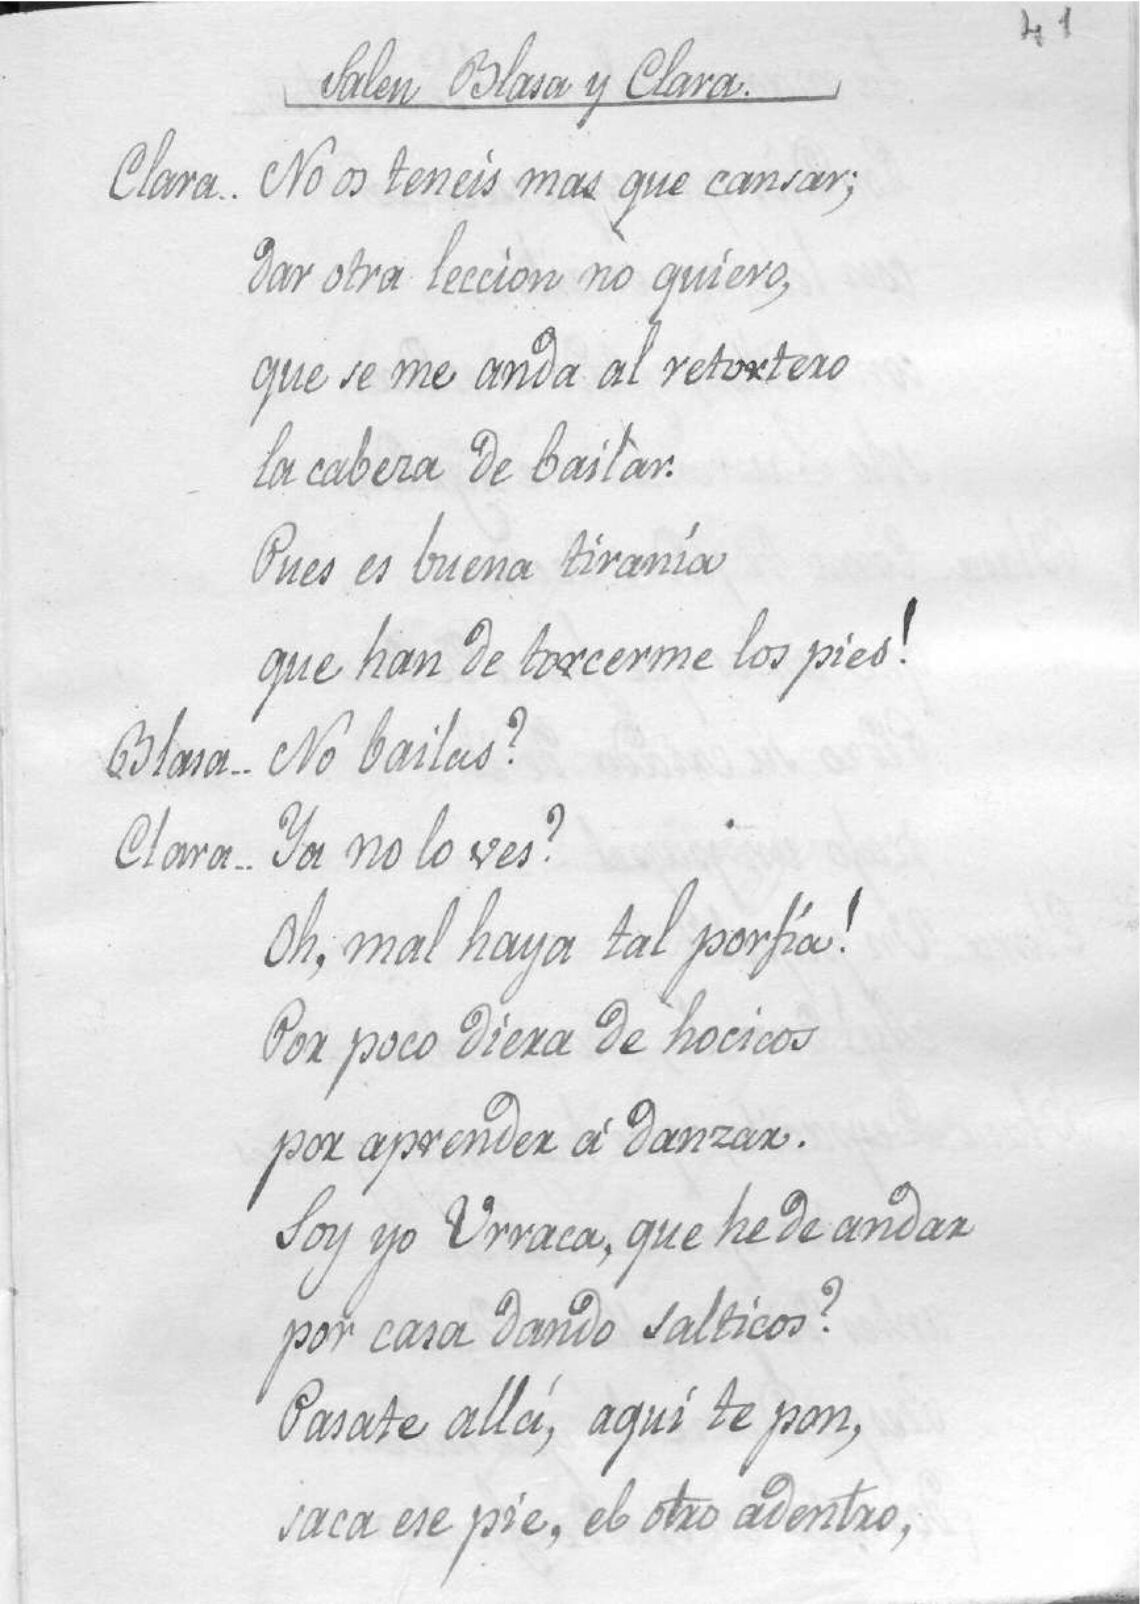 41
Salen Blasa y Clara.
Clara.. No os teneis mas que cansar;
dar otra leccion no quiero,
que se me anda al retortero
la cabeza de bailar.
Pues es buena tiranía
que han de torcerme los pies!
Blasa.. No bailas?
Clara.. Ya no lo ves?
Oh, mal haya tal porfía!
Por poco diera de hocicos
por aprender á danzar.
Soy yo Urraca, que he de andar
por casa dando salticos?
Pasate allá, aqui te pon,
saca ese pie, el otro adentro,